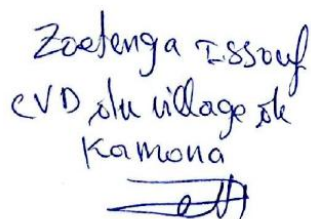 Zoetenga Issouf
CVD du village de
Kamona